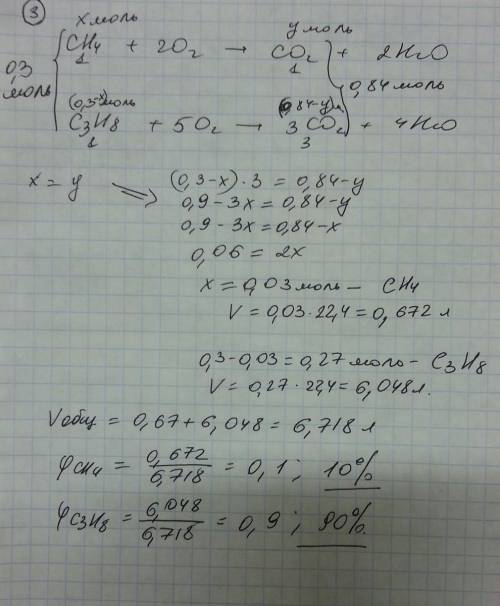 ③
x моль y моль
0,3 моль { CH₄ + 2O₂ → CO₂ + 2H₂O
1 1
0,84 моль
(0,3-x) моль (0,84-y)
C₃H₈ + 5O₂ → 3CO₂ + 4H₂O
1 3
x = y ⇒ (0,3-x)·3 = 0,84-y
0,9-3x = 0,84-y
0,9-3x = 0,84-x
0,06 = 2x
x = 0,03 моль - CH₄
V = 0,03·22,4 = 0,672 л
0,3-0,03 = 0,27 моль - C₃H₈
V = 0,27·22,4 = 6,048 л.
Vобщ = 0,67 + 6,048 = 6,718 л
φCH₄ = 0,672/6,718 = 0,1; 10%
φC₃H₈ = 6,048/6,718 = 0,9; 90%.